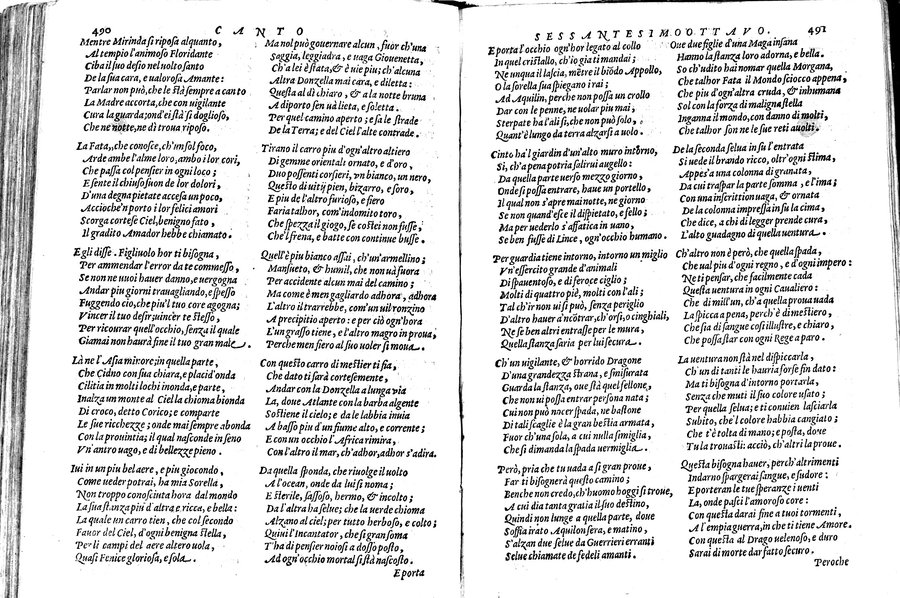 490 CANTO
Mentre Mirinda si riposa alquanto,
Al tempio l'animoso Floridante
Ciba il suo desio nel uolto santo
De la sua cara, e ualorosa Amante:
Parlar non può, che le stà sempre a canto
La Madre accorta, che con uigilante
Cura la guarda; ond'ei stà sì doglioso,
Che ne notte, ne dì troua riposo.
La Fata, che conosce, ch'un sol foco,
Arde ambe l'alme loro, ambo i lor cori,
Che passa col pensier in ogni loco;
E sente il chiuso suon de lor dolori,
D'una degna pietate accesa un poco,
Accioche'n porto i lor felici amori
Scorga cortese Ciel, benigno fato,
Il gradito Amador hebbe chiamato.
Egli disse. Figliuolo hor ti bisogna,
Per ammendar l'error da te commesso,
Se non ne uuoi hauer danno, e uergogna
Andar piu giorni trauagliando, e spesso
Fuggendo ciò, che piu'l tuo core agogna;
Vincer il tuo desir, uincer te stesso,
Per ricourar quell'occhio, senza il quale
Giamai non haurà fine il tuo gran male.
Là ne l'Asia minore; in quella parte,
Che Cidno con sua chiara, e placid'onda
Cilitia in molti lochi inonda, e parte,
Inalza un monte al Ciel la chioma bionda
Di croco, detto Corico; e comparte
Le sue ricchezze; onde mai sempre abonda
Con la prouintia; il qual nasconde in seno
Vn'antro uago, e di bellezze pieno.
Iui in un piu bel aere, e piu giocondo,
Come ueder potrai, ha mia Sorella,
Non troppo conosciuta hora dal mondo
La sua stanza piu d'altra e ricca, e bella:
La quale un carro tien, che col secondo
Fauor del Ciel, d'ogni benigna stella,
Per li campi del aere altero uola,
Quasi Fenice gloriosa, e sola.
Ma nol può gouernare alcun, fuor ch'una
Saggia, leggiadra, e uaga Giouenetta,
Ch'a lei è stata, & è uie piu; ch'alcuna
Altra Donzella mai cara, e diletta:
Questa al dì chiaro, & a la notte bruna
A diporto sen uà lieta, e soletta.
Per quel camino aperto; e fa le strade
De la Terra; e del Ciel l'alte contrade.
Tirano il carro piu d'ogn'altro altiero
Di gemme orientali ornato, e d'oro,
Duo possenti corsieri, un bianco, un nero,
Questo di uitij pien, bizarro, e soro,
E piu de l'altro furioso, e fiero
Faria talhor, com'indomito toro,
Che spezza il giogo, se costei non fusse,
Che'l frena, e batte con continue busse.
Quell'è piu bianco assai, ch'un'armellino;
Mansueto, & humil, che non uà fuora
Per accidente alcun mai del camino;
Ma come è men gagliardo adhora, adhora
L'altro il trarrebbe, com'un uil ronzino
A precipitio aperto: e per ciò ogn'hora
L'un grasso tiene, e l'altro magro in proua,
Perche men fiero al suo uoler si moua.
Con questo carro di mestier ti fia,
Che dato ti sarà cortesemente,
Andar con la Donzella a lunga uia
La, doue Atlante con la barba algente
Sostiene il cielo; e da le labbia inuia
A basso piu d'un fiume alto, e corrente;
E con un occhio l'Africa rimira,
Con l'altro il mar, ch'adhor, adhor s'adira.
Da quella sponda, che riuolge il uolto
A l'ocean, onde da lui si noma;
E sterile, sassoso, hermo, & incolto;
Da l'altra ha selue; che la uerde chioma
Alzano al ciel; per tutto herboso, e colto;
Quiui l'Incantator, che sì gran soma
T'ha di pensier noiosi a dosso posto,
Ad ogn'occhio mortal si stà nascosto.
Eporta
SESSANTESIMOOTTAVO. 491
E porta l'occhio ogn'hor legato al collo
In quel cristallo, ch'io gia ti mandai;
Ne unqua il lascia, mẽtre il biõdo Appollo,
O la sorella sua spiegano i rai;
Ad Aquilin, perche non possa un crollo
Dar con le penne, ne uolar piu mai,
Sterpate ha l'ali sì, che non può solo,
Quant'è lungo da terra alzarsi a uolo.
Cinto ha'l giardin d'un'alto muro intorno,
Sì, ch'a pena potria salirui augello:
Da quella parte uerso mezzo giorno,
Onde si possa entrare, haue un portello,
Il qual non s'apre mai notte, ne giorno
Se non quand'esce il dispietato, e fello;
Ma per uederlo s'affatica in uano,
Se ben fusse di Lince, ogn'occhio humano.
Per guardia tiene intorno, intorno un miglio
Vn'essercito grande d'animali
Dispauentoso, e di feroce ciglio;
Molti di quattro piè, molti con l'ali;
Tal ch'ir non ui si può, senza periglio
D'altro hauer a'ncõtrar, ch'orsi, o cinghiali,
Ne se ben altri entrasse per le mura,
Quella stanza saria per lui secura.
Ch'un uigilante, & horrido Dragone
D'una grandezza strana, e smisurata
Guarda la stanza, oue stà quel fellone,
Che non ui possa entrar persona nata;
Cui non può nocer spada, ne bastone
Di tali scaglie è la gran bestia armata,
Fuor ch'una sola, a cui nulla simiglia,
Che si dimanda la spada uermiglia.
Però, pria che tu uada a sì gran proue,
Far ti bisognerà questo camino;
Benche non credo, ch'huomo hoggi si troue,
A cui dia tanta gratia il suo destino,
Quindi non lunge a quella parte, doue
Soffia irato Aquilon sera, e matino,
S'alzan due selue da Guerrieri erranti
Selue chiamate de fedeli amanti.
Que due figlie d'una Maga insana
Hanno la stanza loro adorna, e bella.
So ch'udito hai nomar quella Morgana,
Che talhor Fata il Mondo sciocco appena,
Che piu d'ogn'altra cruda, & inhumana
Sol con la forza di maligna stella
Inganna il mondo, con danno di molti,
Che talhor son ne le sue reti auolti.
De la seconda selua in su l'entrata
Si uede il brando ricco, oltr'ogni stima,
Appes'a una colonna di granata,
Da cui traspar la parte somma, e l'ima;
Con una inscrittion uaga, & ornata
De la colonna impressa in su la cima,
Che dice, a chi di legger prende cura,
L'alto guadagno di quella uentura.
Ch'altro non è però, che quella spada,
Che ual piu d'ogni regno, e d'ogni impero:
Ne ti pensar, che facilmente cada
Questa uentura in ogni Caualiero:
Che di mill'un, ch'a quella proua uada
La spicca a pena, perch'è di mestiero,
Che sia di sangue così illustre, e chiaro,
Che possa star con ogni Rege a paro.
La uentura non stà nel dispiccarla,
Ch'un di tanti le hauria forse fin dato:
Ma ti bisogna d'intorno portarla,
Senza che muti il suo colore usato;
Per quella selua; e ti conuien lasciarla
Subito, che'l colore habbia cangiato;
Che t'è tolta di mano; e posta, doue
Tu la trouasti: acciò, ch'altri la proue.
Questa bisogna hauer, perch'altrimenti
Indarno spargerai sangue, e sudore:
E porteran le tue speranze i uenti
La, onde pasci l'amoroso core:
Con questa darai fine a tuoi tormenti,
A l'empia guerra, in che ti tiene Amore.
Con questa al Drago uelenoso, e duro
Sarai di morte dar fatto securo.
Peroche